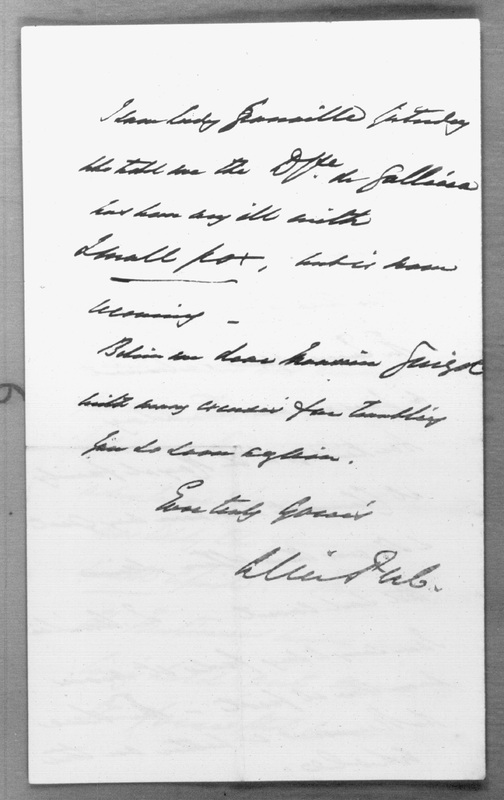 I saw Lady Granville Saturday
she told me the Dsse. de Galliera
has been very ill with
Small pox, but is now
recovering –
Believe me dear Monsieur Guizot
with many excuses for troubling
you so soon again.
Ever truly yours
Alice Peel.